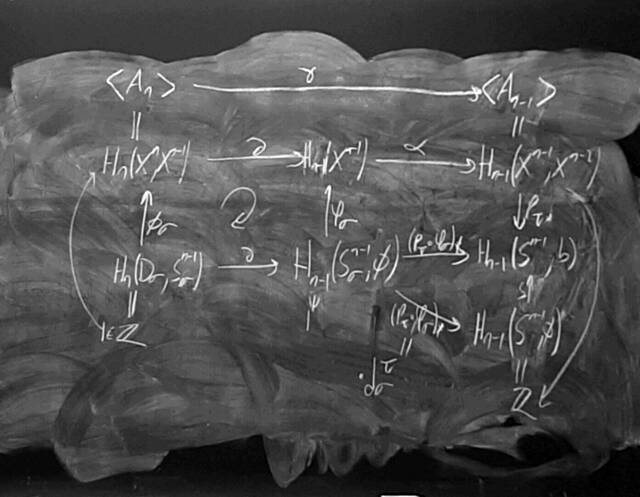 <A_n> γ <A_{n-1}>
|| ||
H_n(X^n, X^{n-1}) ∂ H_{n-1}(X^{n-1}) α H_{n-1}(X^{n-1}, X^{n-2})
↑ϕ_σ ↑φ_σ ↓ρ_τ*
H_n(D_σ^n, S_σ^{n-1}) ∂ H_{n-1}(S_σ^{n-1}, ϕ) (ρ_τ∘φ_σ)_* H_{n-1}(S^{n-1}, b)
|| ψ S||
1∈ℤ (ρ_τ∘φ_σ)_* H_{n-1}(S^{n-1}, ϕ)
|| ||
·d_σ^τ ℤ